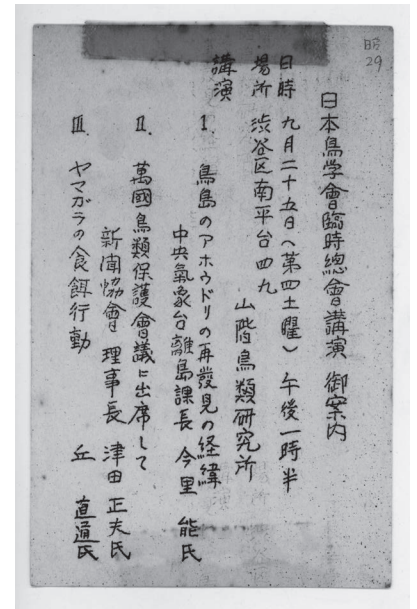 昭
29
日本鳥学會臨時總會講演 御案内
日時 九月二十五日(第四土曜) 午後一時半
場所 渋谷区南平台四九
山階鳥類研究所
講演
I. 鳥島のアホウドリの再發見の経緯
中央氣象台離島課長 今里 能氏
II. 萬國鳥類保護會議に出席して
新聞協會理事長 津田正夫氏
III. ヤマガラの食餌行動 丘 直通氏